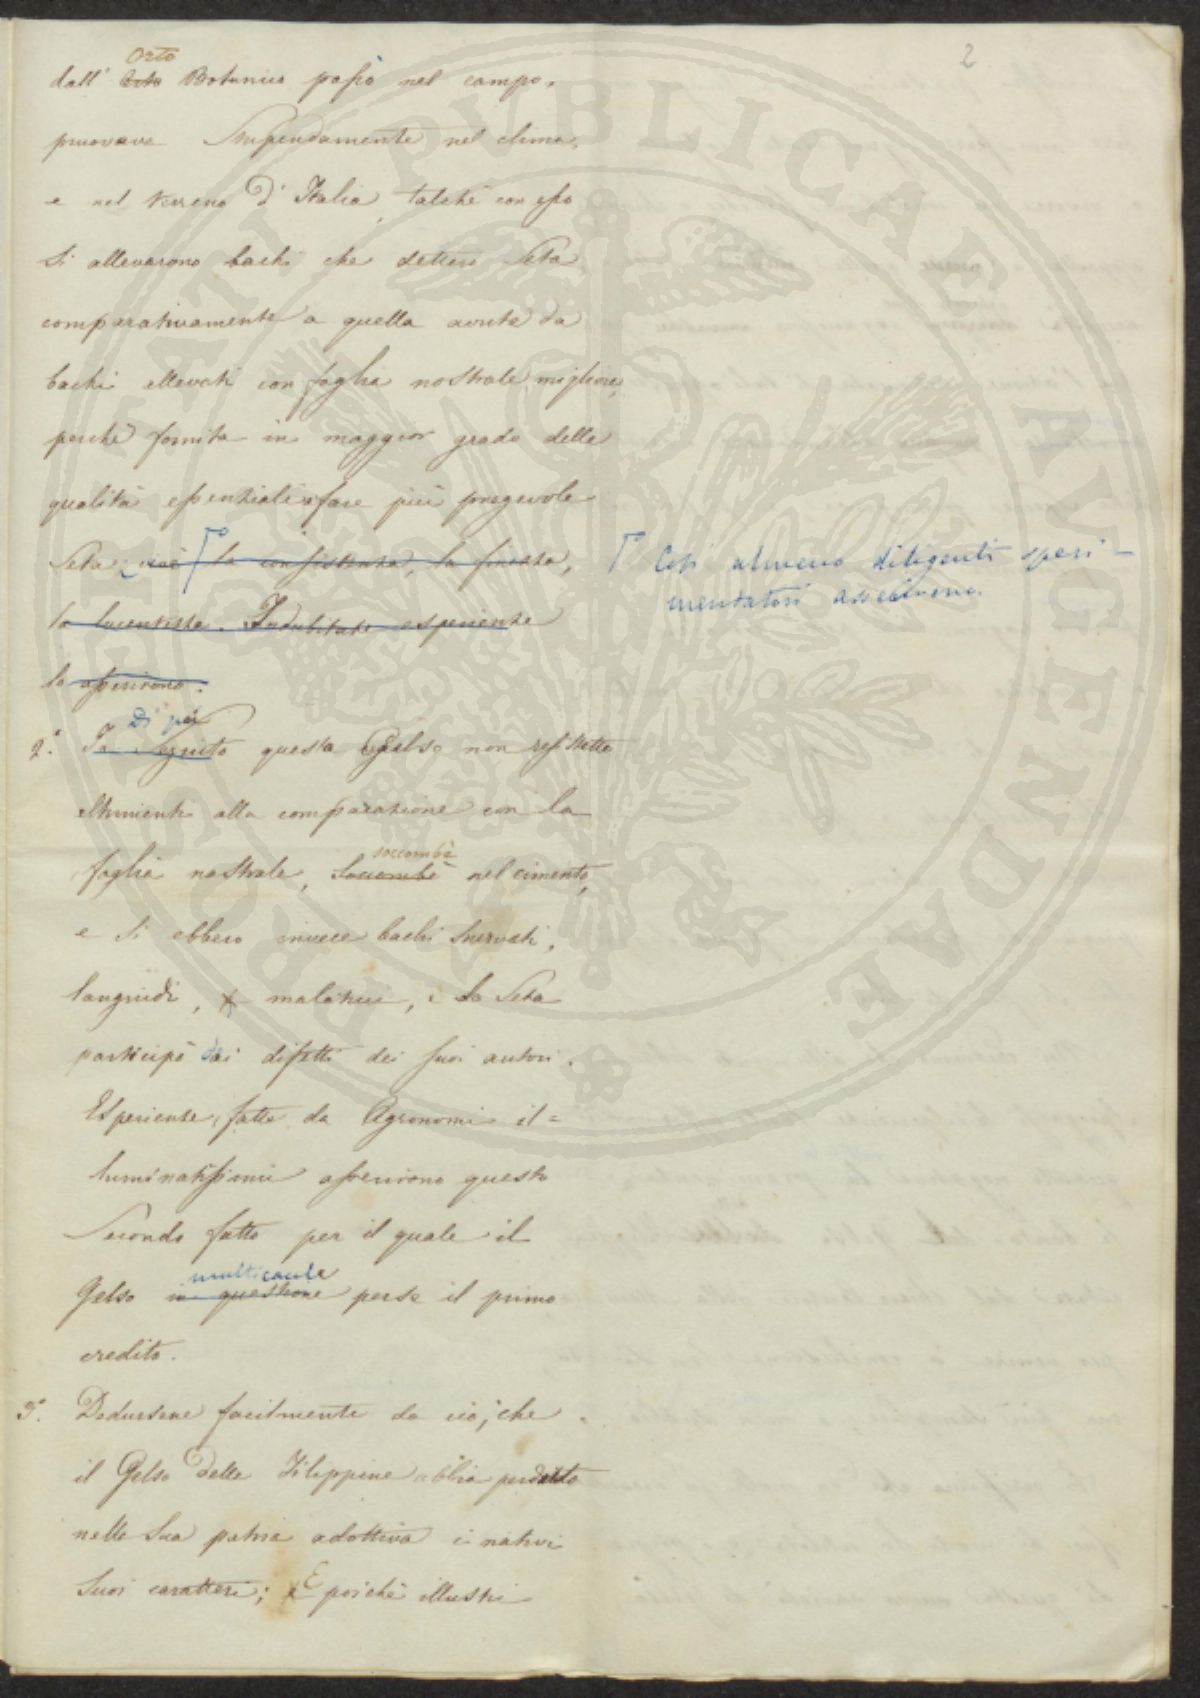 2
Orto
dall' Orto Botanico passò nel campo,
pruovava stupendamente nel clima,
e nel terreno d'Italia, talchè con esso
si allevarono bachi che dettero seta
comparativamente a quella avuta da
bachi allevati con foglia nostrale migliore,
perchè fornita in maggior grado delle
qualità essenziali a fare più pregevole
seta; cioè la consistenza, la finezza,
la lucentezza. Indubitate esperienze
lo asserirono.
Così almeno diligenti speri-
mentatori asserirono.
Di poi
2.° In seguito questo Gelso non resistette
altrimenti alla comparazione con la
foglia nostrale, soccombè nel cimento,
soccombè
e si ebbero invece bachi snervati,
languidi, e malaticci, e la seta
partecipò dai difetti dei suoi autori.
Esperienze, fatte da Agronomi il=
luminatissimi asserirono questo
secondo fatto per il quale il
multicaule
Gelso in questione perse il primo
credito.
3.° Dedursene facilmente da ciò, che
il Gelso delle Filippine abbia perduto
nella sua patria adottiva i nativi
suoi caratteri; E poichè illustri
PROSPERITATI PUBLICAE AVGENDAE